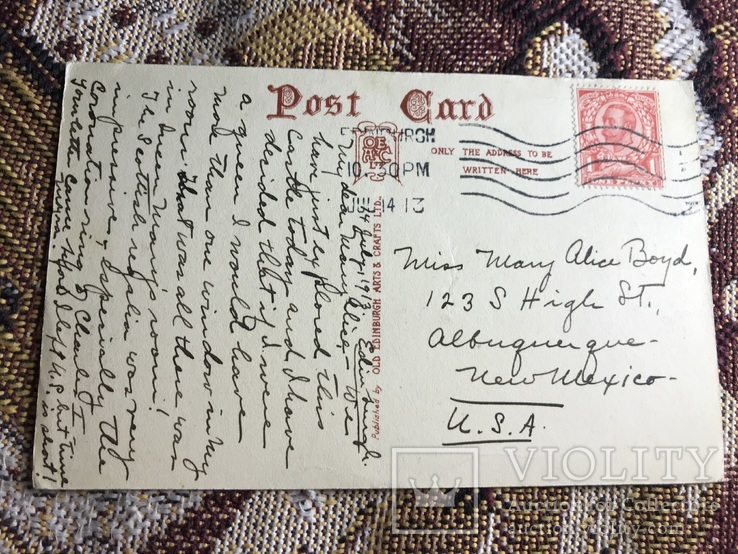 Post Card
EDINBURGH
10.30 PM
JUL 4 13
ONLY THE ADDRESS TO BE
WRITTEN HERE
Miss Mary Alice Boyd,
123 S High St.,
Albuquerque-
New Mexico-
U.S.A.
Published by OLD EDINBURGH ARTS & CRAFTS LTD.
4 July 1913 Edinburgh.
My dear Mary Alice - We
have just explored this
Castle today and I have
decided that if I were
a queen I would have
more than one window in my
room. That was all there was
in Queen Mary's room!
The Scottish regalia was very
impressive, & especially the
Coronation ring of Charles I
Your letter came before I left U.S. but time
is short!
VIOLITY
Auction for Collectible
auction.violity.com